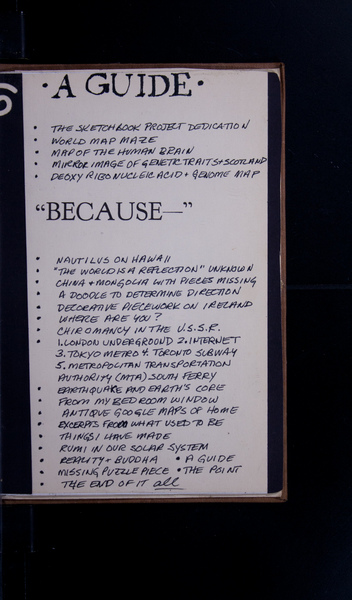 • A GUIDE •
• THE SKETCHBOOK PROJECT DEDICATION
• WORLD MAP MAZE
• MAP OF THE HUMAN BRAIN
• MIRROR IMAGE OF GENETIC TRAITS + SCOTLAND
• DEOXYRIBONUCLEIC ACID + GENOME MAP
"BECAUSE—"
• NAUTILUS ON HAWAII
• "THE WORLD IS A REFLECTION" UNKNOWN
• CHINA + MONGOLIA WITH PIECES MISSING
• A DOODLE TO DETERMINE DIRECTION
• DECORATIVE PIECEWORK ON IRELAND
• WHERE ARE YOU?
• CHIROMANCY IN THE U.S.S.R.
• 1. LONDON UNDERGROUND 2. INTERNET
3. TOKYO METRO 4. TORONTO SUBWAY
5. METROPOLITAN TRANSPORTATION
AUTHORITY (MTA) SOUTH FERRY
• EARTHQUAKE AND EARTH'S CORE
• FROM MY BEDROOM WINDOW
• ANTIQUE GOOGLE MAPS OF HOME
• EXCERPTS FROM WHAT USED TO BE
• THINGS I HAVE MADE
• RUMI IN OUR SOLAR SYSTEM
• REALITY + BUDDHA • A GUIDE
• MISSING PUZZLE PIECE • THE POINT
• THE END OF IT all